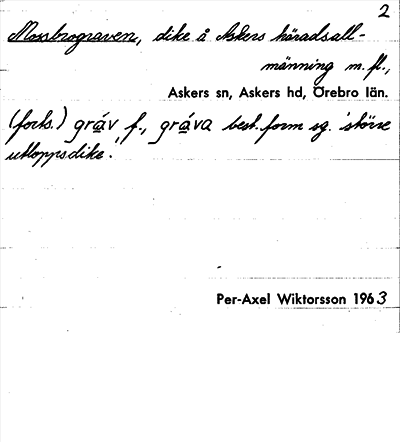 2
Mossbrograven, dike å Askers häradsall-
männing m. fl.,
Askers sn, Askers hd, Örebro län.
(forts.) gráv, f., gráva best. form sg. 'större
utloppsdike'.
Per-Axel Wiktorsson 1963